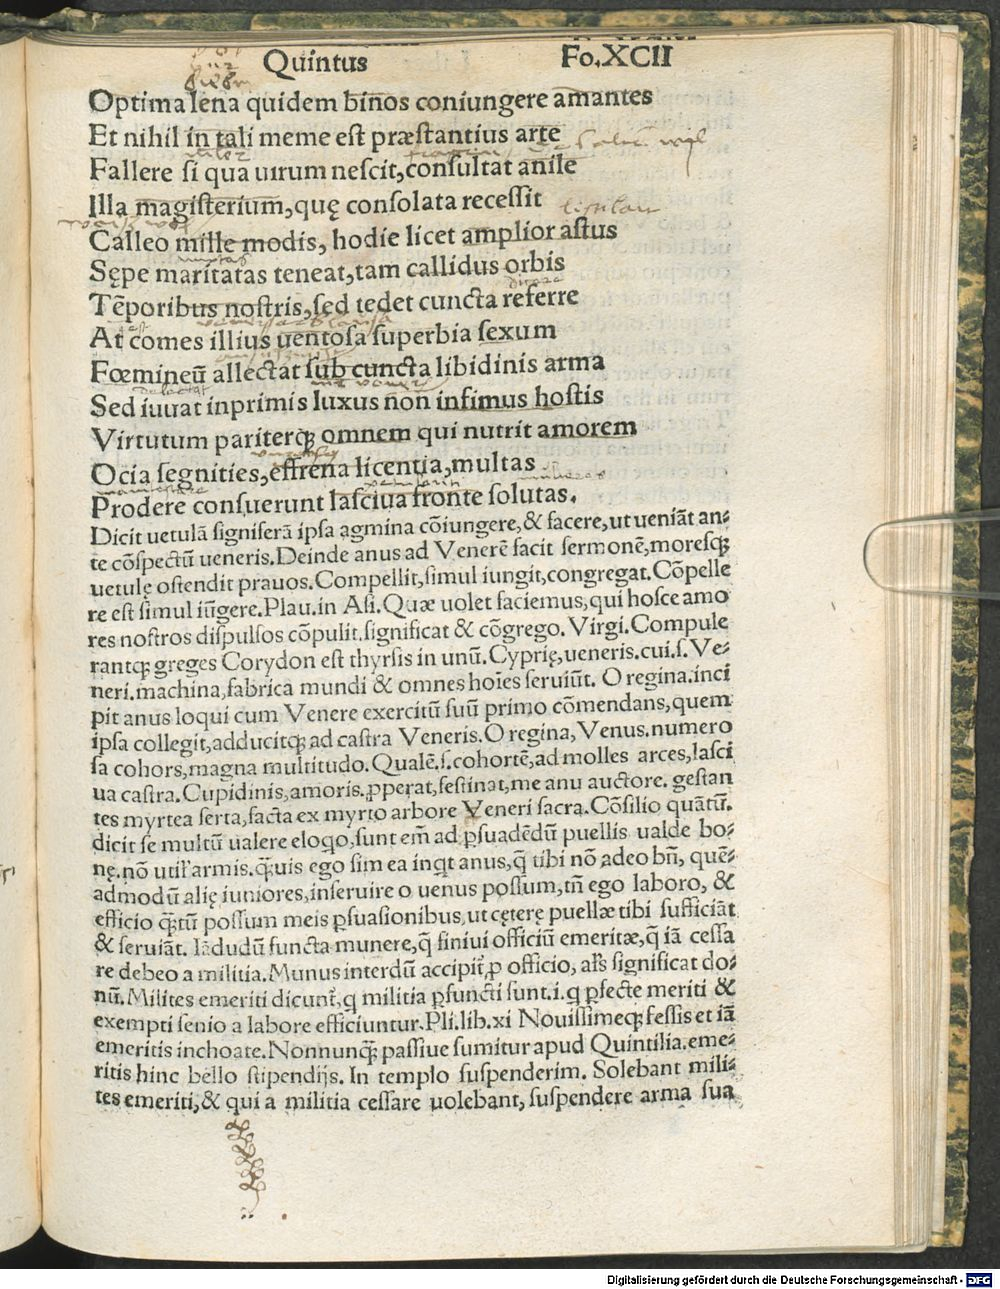 Quintus Fo.XCII
Optima lena quidem binos coniungere amantes
Et nihil in tali meme est præstantius arte
Fallere si qua uirum nescit, consultat anile
Illa magisterium, quę consolata recessit
Calleo mille modis, hodie licet amplior astus
Sępe maritatas teneat, tam callidus orbis
Tēporibus nostris, sed tedet cuncta referre
At comes illius uentosa superbia sexum
Fœmineū allectat sub cuncta libidinis arma
Sed iuuat inprimis luxus non infimus hostis
Virtutum pariterq; omnem qui nutrit amorem
Ocia segnities, effrena licentia, multas
Prodere consuerunt lasciua fronte solutas.
Dicit uetulā signiferā ipsa agmina cōiungere, & facere, ut ueniāt an-
te cōspectū ueneris. Deinde anus ad Venerē facit sermonē, moresq;
uetulę ostendit prauos. Compellit, simul iungit, congregat. Cōpelle
re est simul iūgere. Plau. in Asi. Quæ uolet faciemus, qui hosce amo
res nostros dispulsos cōpulit. significat & cōgrego. Virgi. Compule
rantq; greges Corydon est thyrsis in unū. Cyprię, ueneris. cui. s. Ve-
neri. machina, fabrica mundi & omnes hoīes seruiūt. O regina. inci
pit anus loqui cum Venere exercitū suū primo cōmendans, quem
ipsa collegit, adducitq; ad castra Veneris. O regina, Venus. numero
sa cohors, magna multitudo. Qualē. s. cohortē, ad molles arces, lasci
ua castra. Cupidinis, amoris. ꝓperat, festinat, me anu auctore. gestan
tes myrtea serta, facta ex myrto arbore Veneri sacra. Cōsilio quātū.
dicit se multū ualere eloqo, sunt em̄ ad ꝑsuadēdū puellis ualde bo-
nę. nō utiľ armis. q̄uis ego sim ea inqt anus, q̄ tibi nō adeo bn̄, quē-
admodū alię iuniores, inseruire o uenus possum, tn̄ ego laboro, &
efficio q̄tū possum meis ꝑsuasionibus, ut cęterę puellæ tibi sufficiāt
& seruiāt. Iādudū functa munere, q̄ finiui officiū emeritæ, q̄ iā cessa
re debeo a militia. Munus interdū accipit̄ ꝓ officio, aľs significat do-
nū. Milites emeriti dicunt̄, q militia ꝑfuncti sunt. i. q ꝑfecte meriti &
exempti senio a labore efficiuntur. Pli. lib. xi Nouissimeq; fessis et iā
emeritis inchoate. Nonnunq̄ passiue sumitur apud Quintilia. eme-
ritis hinc bello stipendijs. In templo suspenderim. Solebant mili-
tes emeriti, & qui a militia cessare uolebant, suspendere arma sua
Digitalisierung gefördert durch die Deutsche Forschungsgemeinschaft - DFG